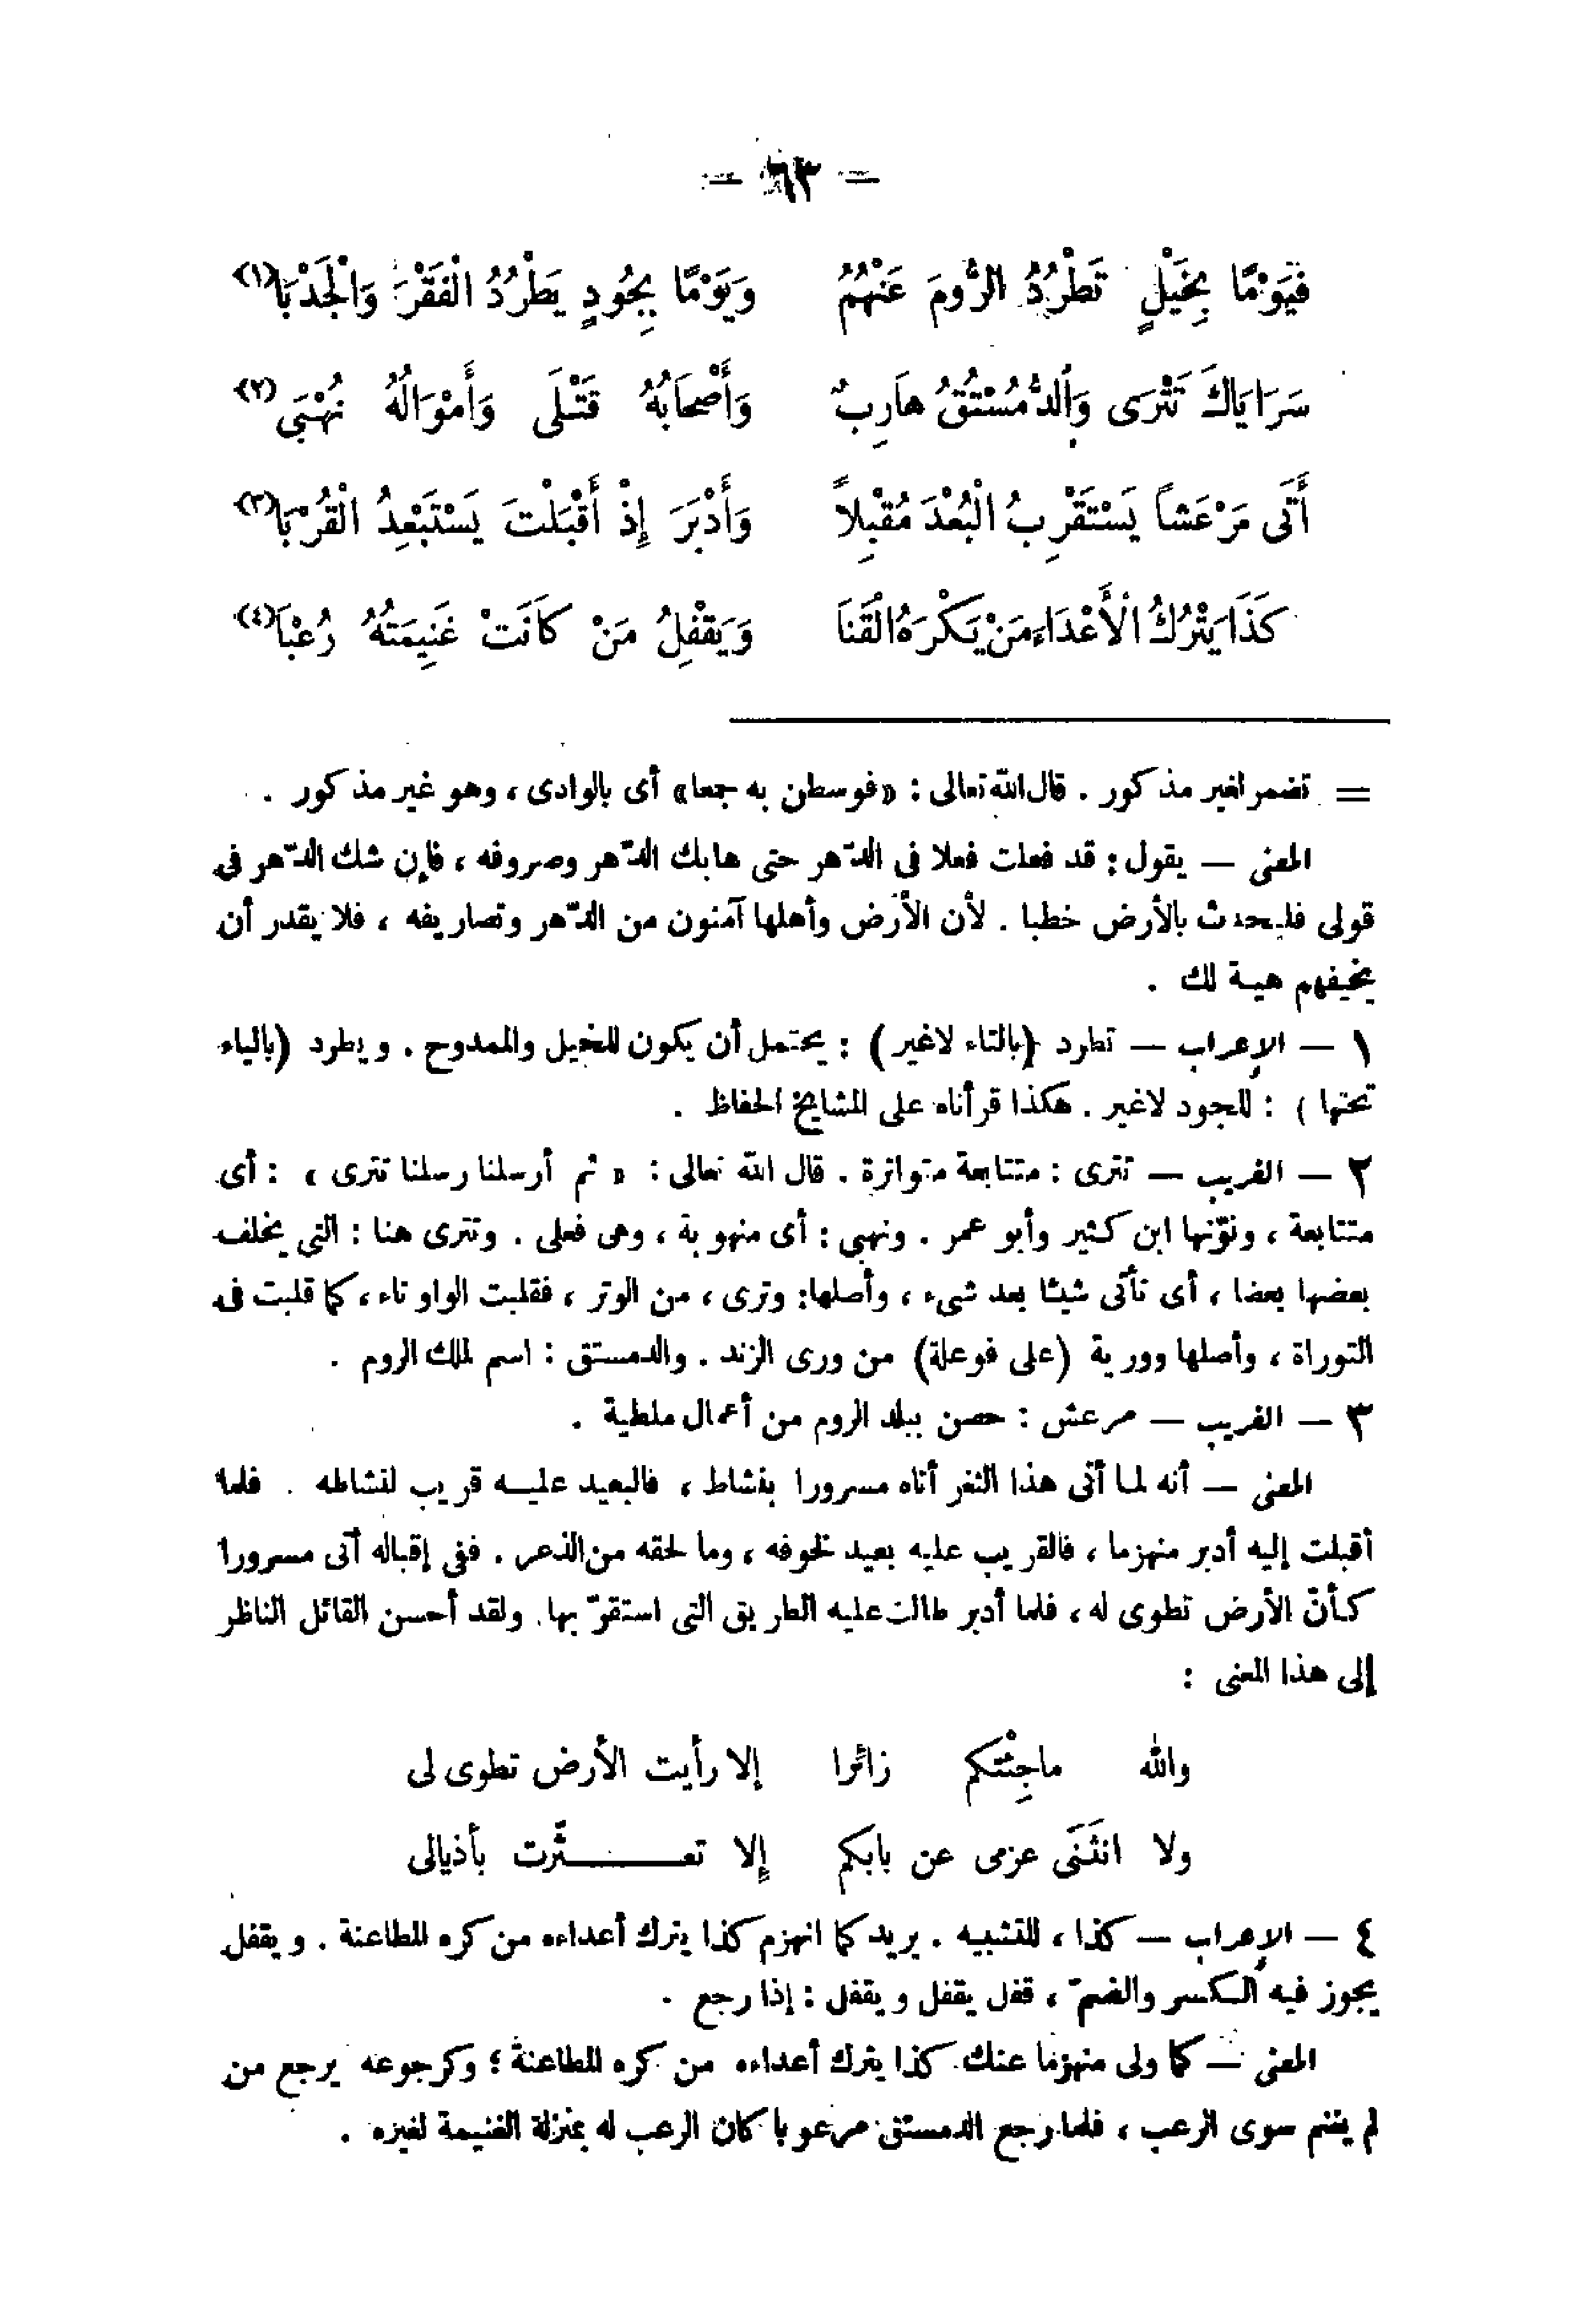 — ٦٣ —
فَيَوْمًا بِخَيْلٍ تَطْرُدُ الرُّومَ عَنْهُمُ وَيَوْمًا بِجُودٍ يَطْرُدُ الْفَقْرَ وَالْجَدْبَا(١)
سَرَايَاكَ تَتْرَى وَالدُّمُسْتُقُ هَارِبٌ وَأَصْحَابُهُ قَتْلَى وَأَمْوَالُهُ نُهْبَى(٢)
أَتَى مَرْعَشاً يَسْتَقْرِبُ الْبُعْدَ مُقْبِلاً وَأَدْبَرَ إِذْ أَقْبَلْتَ يَسْتَبْعِدُ الْقُرْبَا(٣)
كَذَا يَتْرُكُ الْأَعْدَاءَ مَنْ يَكْرَهُ الْقَنَا وَيَقْفِلُ مَنْ كَانَتْ غَنِيمَتُهُ رُعْبَا(٤)
= تضمر لغير مذكور . قال الله تعالى : «فوسطن به جمعا» أى بالوادى ، وهو غير مذكور .
المعنى — يقول : قد فعلت فعلا فى الدّهر حتى هابك الدّهر وصروفه ، فإن شك الدّهر فى
قولى فليحدث بالأرض خطبا . لأن الأرض وأهلها آمنون من الدّهر وتصاريفه ، فلا يقدر أن
يخيفهم هيبة لك .
١ — الإعراب — تطرد (بالتاء لاغير) : يحتمل أن يكون للخيل والممدوح . ويطرد (بالياء
تحتها) : للجود لاغير . هكذا قرأناه على المشايخ الحفاظ .
٢ — الغريب — تترى : متتابعة متواترة . قال الله تعالى : « ثم أرسلنا رسلنا تترى » : أى
متتابعة ، ونوّنها ابن كثير وأبو عمر . ونهبى : أى منهوبة ، وهى فعلى . وتترى هنا : التى يخلف
بعضها بعضا ، أى تأتى شيئا بعد شىء ، وأصلها: وترى ، من الوتر ، فقلبت الواو تاء ، كما قلبت فى
التوراة ، وأصلها وورية (على فوعلة) من ورى الزند . والدمستق : اسم لملك الروم .
٣ — الغريب — مرعش : حصن ببلد الروم من أعمال ملطية .
المعنى — أنه لما أتى هذا الثغر أتاه مسرورا بنشاط ، فالبعيد عليه قريب لنشاطه . فلما
أقبلت إليه أدبر منهزما ، فالقريب عليه بعيد لخوفه ، وما لحقه من الذعر . ففى إقباله أتى مسرورا
كأنّ الأرض تطوى له ، فلما أدبر طالت عليه الطريق التى استقرّ بها . ولقد أحسن القائل الناظر
إلى هذا المعنى :
والله ماجِئْتكم زائرا إلا رأيت الأرض تطوى لى
ولا انثَنَى عزمى عن بابكم إلا تعـــثّرت بأذيالى
٤ — الإعراب — كذا ، للتشبيه . يريد كما انهزم كذا يترك أعداءه من كره المطاعنة . ويقفل
يجوز فيه الكسر والضمّ ، قفل يقفل ويقفل : إذا رجع .
المعنى — كما ولى منهزما عنك كذا يترك أعداءه من كره المطاعنة ؛ وكرجوعه يرجع من
لم يغنم سوى الرعب ، فلما رجع الدمستق مرعوبا كان الرعب له بمنزلة الغنيمة لغيره .